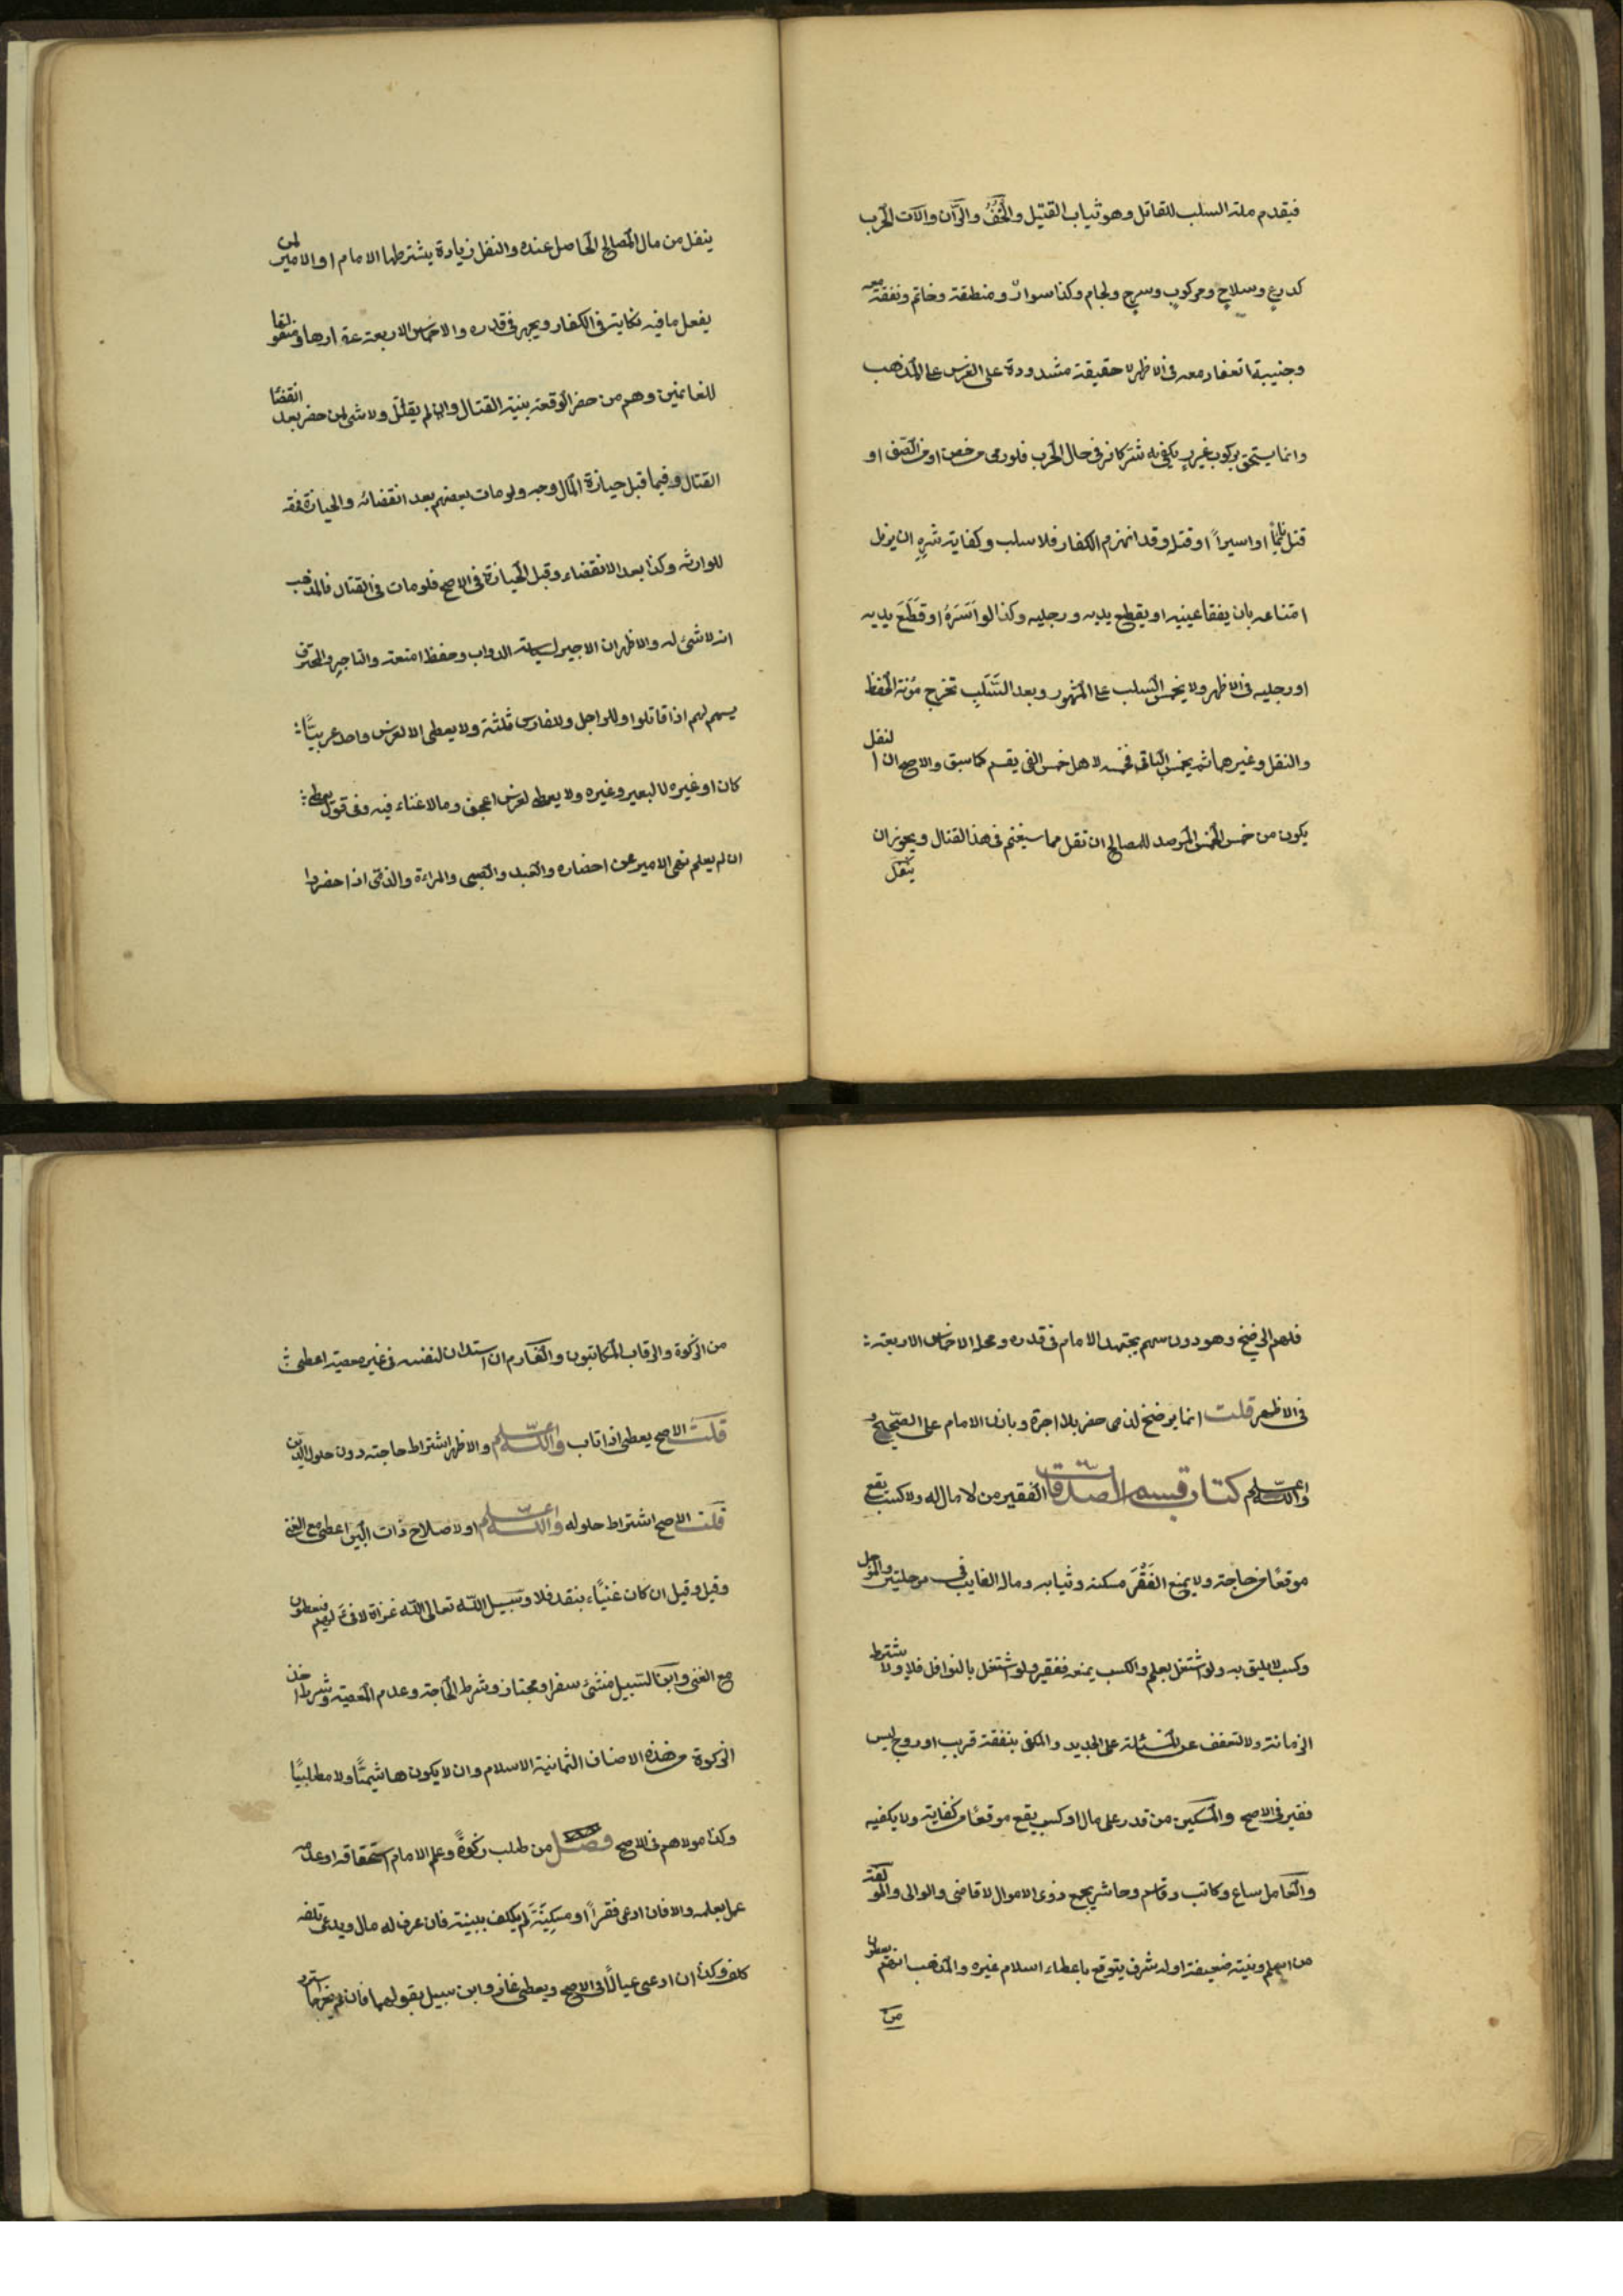 فيقدم منه السلب للقاتل وهو ثياب القتيل والخُفُّ والرَّان والآت الحرب
كدرعٍ وسلاحٍ ومركوبٍ وسرجٍ ولجام وكذا سوارٌ ومنطقة وخاتم ونفقة معه
وجنيبة تقاد معه في الاظهر لا حقيقة مشدودة على الفرس على المذهب
وانما يستحق بركوب غررٍ يكفى به شر كافر في حال الحرب فلو رمى من حصن او من الصف او
قتل نائماً او اسيراً او قتله وقد انهزم الكفار فلا سلب وكفاية شره ان يزيل
امتناعه بان يفقا عينيه او يقطع يديه ورجليه وكذا لو اَسَرَهُ او قَطَعَ يديه
او رجليه في الاظهر ولا يخمس السلب على المشهور وبعد السَّلَبِ تخرج مُؤنة الحفظ
والنقل وغيرهما ثم يخمس الباقي فخمسه لاهل خمس الفئ يقسم كما سبق والاصح ان النفل
يكون من خمس الخمس المرصد للمصالح ان نفل مما سيغنم في هذا القتال ويجوز ان
ينفل
ينفل من مال المصالح الحاصل عنده والنفل زيادة يشترطها الامام او الامير لمن
يفعل ما فيه نكاية في الكفار ويجهر في قدره والاخماس الاربعة عقارها ومنقولها
للغانمين وهم من حضر الوقعة بنية القتال وان لم يقاتل ولا شئ لمن حضر بعد انقضا
القتال وفيما قبل حيازة المال وجه ولو مات بعضهم بعد انقضائه والحيازة فحقه
للوارثه وكذا بعد الانقضاء وقبل الحيازة في الاصح فلو مات في القتال فالمذهب
انه لا شئ له والاظهر ان الاجير لسياسة الدواب وحفظ امتعة والتاجر والمحترف
يسهم لهم اذا قاتلوا وللراجل وللفارس ثلثة ولا يعطى الا لفرس واحد عربيّاً
كان او غيره لا لبعير وغيره ولا يعطى لفرس اعجف وما لا غناء فيه وفي قول يعطى
ان لم يعلم نهى الامير عن احضاره والعبد والصبي والمراءة والذمى اذا حضروا
فلهم الرضخ وهو دون سهم يجتهد الامام في قدره ومحله الاخماس الاربعة
في الاظهر قلت انما يرضخ لذمى حضر بلا اجرة وباذن الامام على الصحيح
والله اعلم كتاب قسم الصدقات الفقير من لا مال له ولا كسب يقع
موقعًا من حاجته ولا يمنع الفَقْرَ مسكنه وثيابه وماله الغايب في مرحلتين والمؤجل
وكسب لا يليق به ولو اشتغل بعلم والكسب يمنعه ففقير ولو اشتغل بالنوافل فلا ولا يشترط
الزمانة ولا التعفف عن المسئلة على الجديد والمكفى بنفقة قريب او زوج ليس
فقير في الاصح والمسكين من قدر على مال او كسب يقع موقعًا من كفايته ولا يكفيه
والعامل ساع وكاتب وقاسم وحاشر يجمع ذوى الاموال لا قاضى والوالى والمؤلفة
من اسلم ونيته ضعيفة او له شرف يتوقع باعطاء اسلام غيره والمذهب انهم يعطون
من
من الزكوة والرقاب المكاتبون والغارم ان استدان لنفسه في غير معصية اعطى
قلت الاصح يعطى اذا تاب والله اعلم والاظهر اشتراط حاجته دون حلول الدين
قلت الاصح اشتراط حلوله والله اعلم او لاصلاح ذات البين اعطى مع الغنى
وقيل وقيل ان كان غنيّاء بنقد فلا وسبيل الله تعالى الله غزاة لا فئ لهم فيعطون
مع الغنى وابن السبيل منشئ سفر او مجتاز وشرط الحاجة وعدم المعصية وشرط اخذ
الزكوة من هذه الاصناف الثمانية الاسلام وان لا يكون هاشيمًّا ولا مطلبيًّا
وكذا مولاهم في الاصح فصل من طلب زكوةً وعلم الامام استحقاقه او عدمه
عمل بعلمه والا فان ادعى فقراً او مسكنةً لم يكلف ببينة فان عرف له مال ويدعى تلفه
كلف وكذا ان ادعى عيالًا في الاصح ويعطى غاز وابن سبيل بقولهما فان لم يخرجا استرد